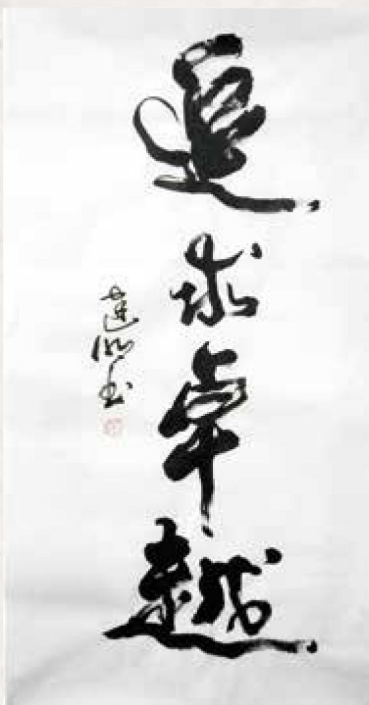 追求卓越